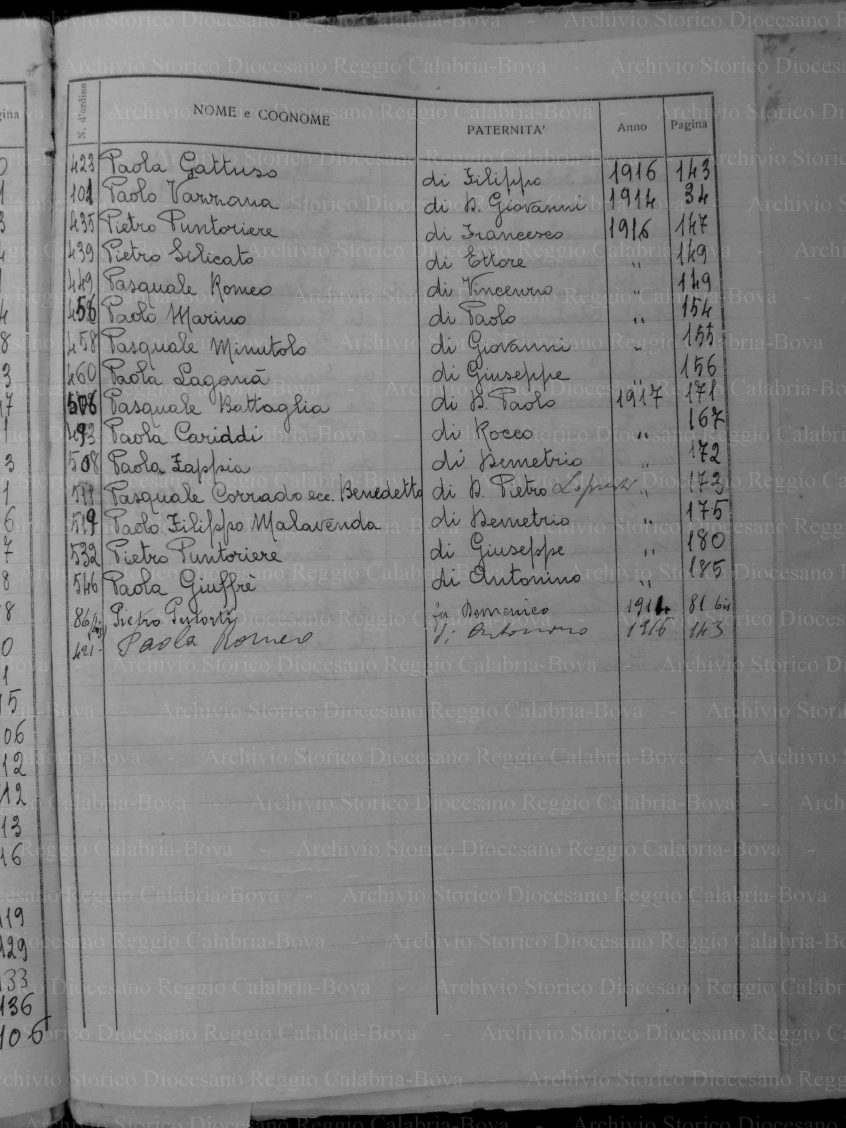 N. d'ordine NOME e COGNOME PATERNITA' Anno Pagina
423 Paola Gattuso di Filippo 1916 143
101 Paolo Varrnana di D. Giovanni 1914 34
435 Pietro Puntoriere di Francesco 1916 147
439 Pietro Silicato di Ettore " 149
449 Pasquale Romeo di Vincenzo " 149
456 Paolo Marino di Paolo " 154
458 Pasquale Minutolo di Giovanni " 155
460 Paola Laganà di Giuseppe " 156
506 Pasquale Battaglia di D. Paolo 1917 171
493 Paola Cariddi di Rocco " 167
508 Paola Zappia di Demetrio " 172
511 Pasquale Corrado ecc. Benedetto di D. Pietro " 173
519 Paolo Filippo Malavenda di Demetrio " 175
532 Pietro Puntoriere di Giuseppe " 180
546 Paola Giuffrè di Antonino " 185
86 Pietro Putortì fu Domenico 1914 81 bis
421 Paola Romeo di Antonino 1916 143
Archivio Storico Diocesano Reggio Calabria-Bova